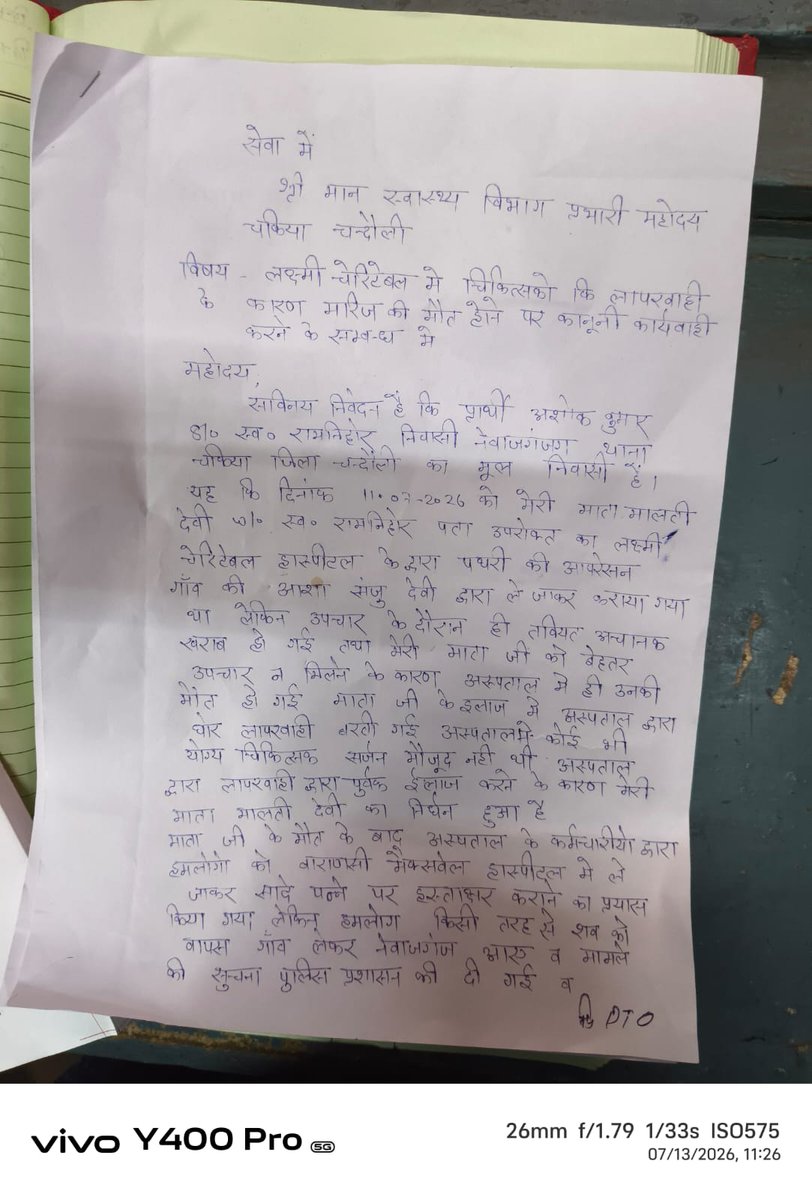 सेवा में
श्री मान स्वास्थ्य विभाग प्रभारी महोदय
चकिया चन्दौली
विषय - लक्ष्मी चेरिटेबल मे चिकित्सको कि लापरवाही
के कारण मारिज की मौत होने पर कानूनी कार्यवाही
करने के सम्बन्ध मे
महोदय,
सविनय निवेदन है कि प्रार्थी अशोक कुमार
S/० स्व० रामनिहोर निवासी नेवाजगंजग थाना
चकिया जिला चन्दौली का मूल निवासी हैं।
यह कि दिनांक 11.07-2026 को मेरी माता मालती
देवी w/० स्व० रामनिहोर पता उपरोक्त का लक्ष्मी
चेरिटेबल हास्पीटल के द्वारा पथरी की आपरेसन
गाँव की आशा संजु देवी द्वारा ले जाकर कराया गया
था लेकिन उपचार के दौरान ही तवियत अचानक
खराब हो गई तथा मेरी माता जी को बेहतर
उपचार न मिलने के कारण अस्पताल मे ही उनकी
मौत हो गई माता जी के इलाज मे अस्पताल द्वारा
घोर लापरवाही बरती गई अस्पतालमे कोई भी
योग्य चिकित्सक सर्जन मौजूद नही थी अस्पताल
द्वारा लापरवाही द्वारा पुर्वक ईलाज करने के कारण मेरी
माता मालती देवी का निर्धन हुआ है
माता जी के मौत के बाद अस्पताल के कर्मचारीयो द्वारा
हमलोगो को वाराणसी मैक्सवेल हास्पीटल मे ले
जाकर सादे पन्ने पर हस्ताक्षर कराने का प्रयास
किया गया लेकिन् हमलोग किसी तरह से शव को
वापस गाँव लेकर नेवाजगंज आए व मामले
की सुचना पुलिस प्रशासन की दी गई व
PTO
vivo Y400 Pro 5G
26mm f/1.79 1/33s ISO575
07/13/2026, 11:26